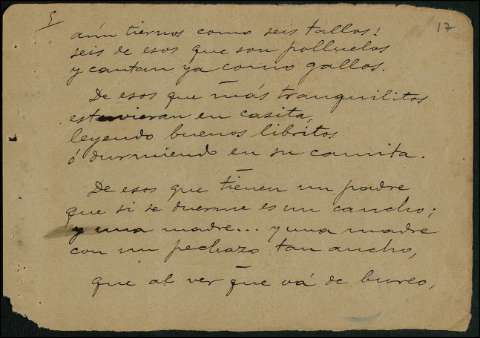 17
aún tiernos como seis tallos!
seis de esos que son polluelos
y cantan ya como gallos.
De esos que más tranquilitos
estuvieran en casita,
leyendo buenos libritos
ó durmiendo en su camita.
De esos que tienen un padre
que si se duerme es un cancho;
y una madre... y una madre
con un pechazo tan ancho,
que al ver que vá de bureo,